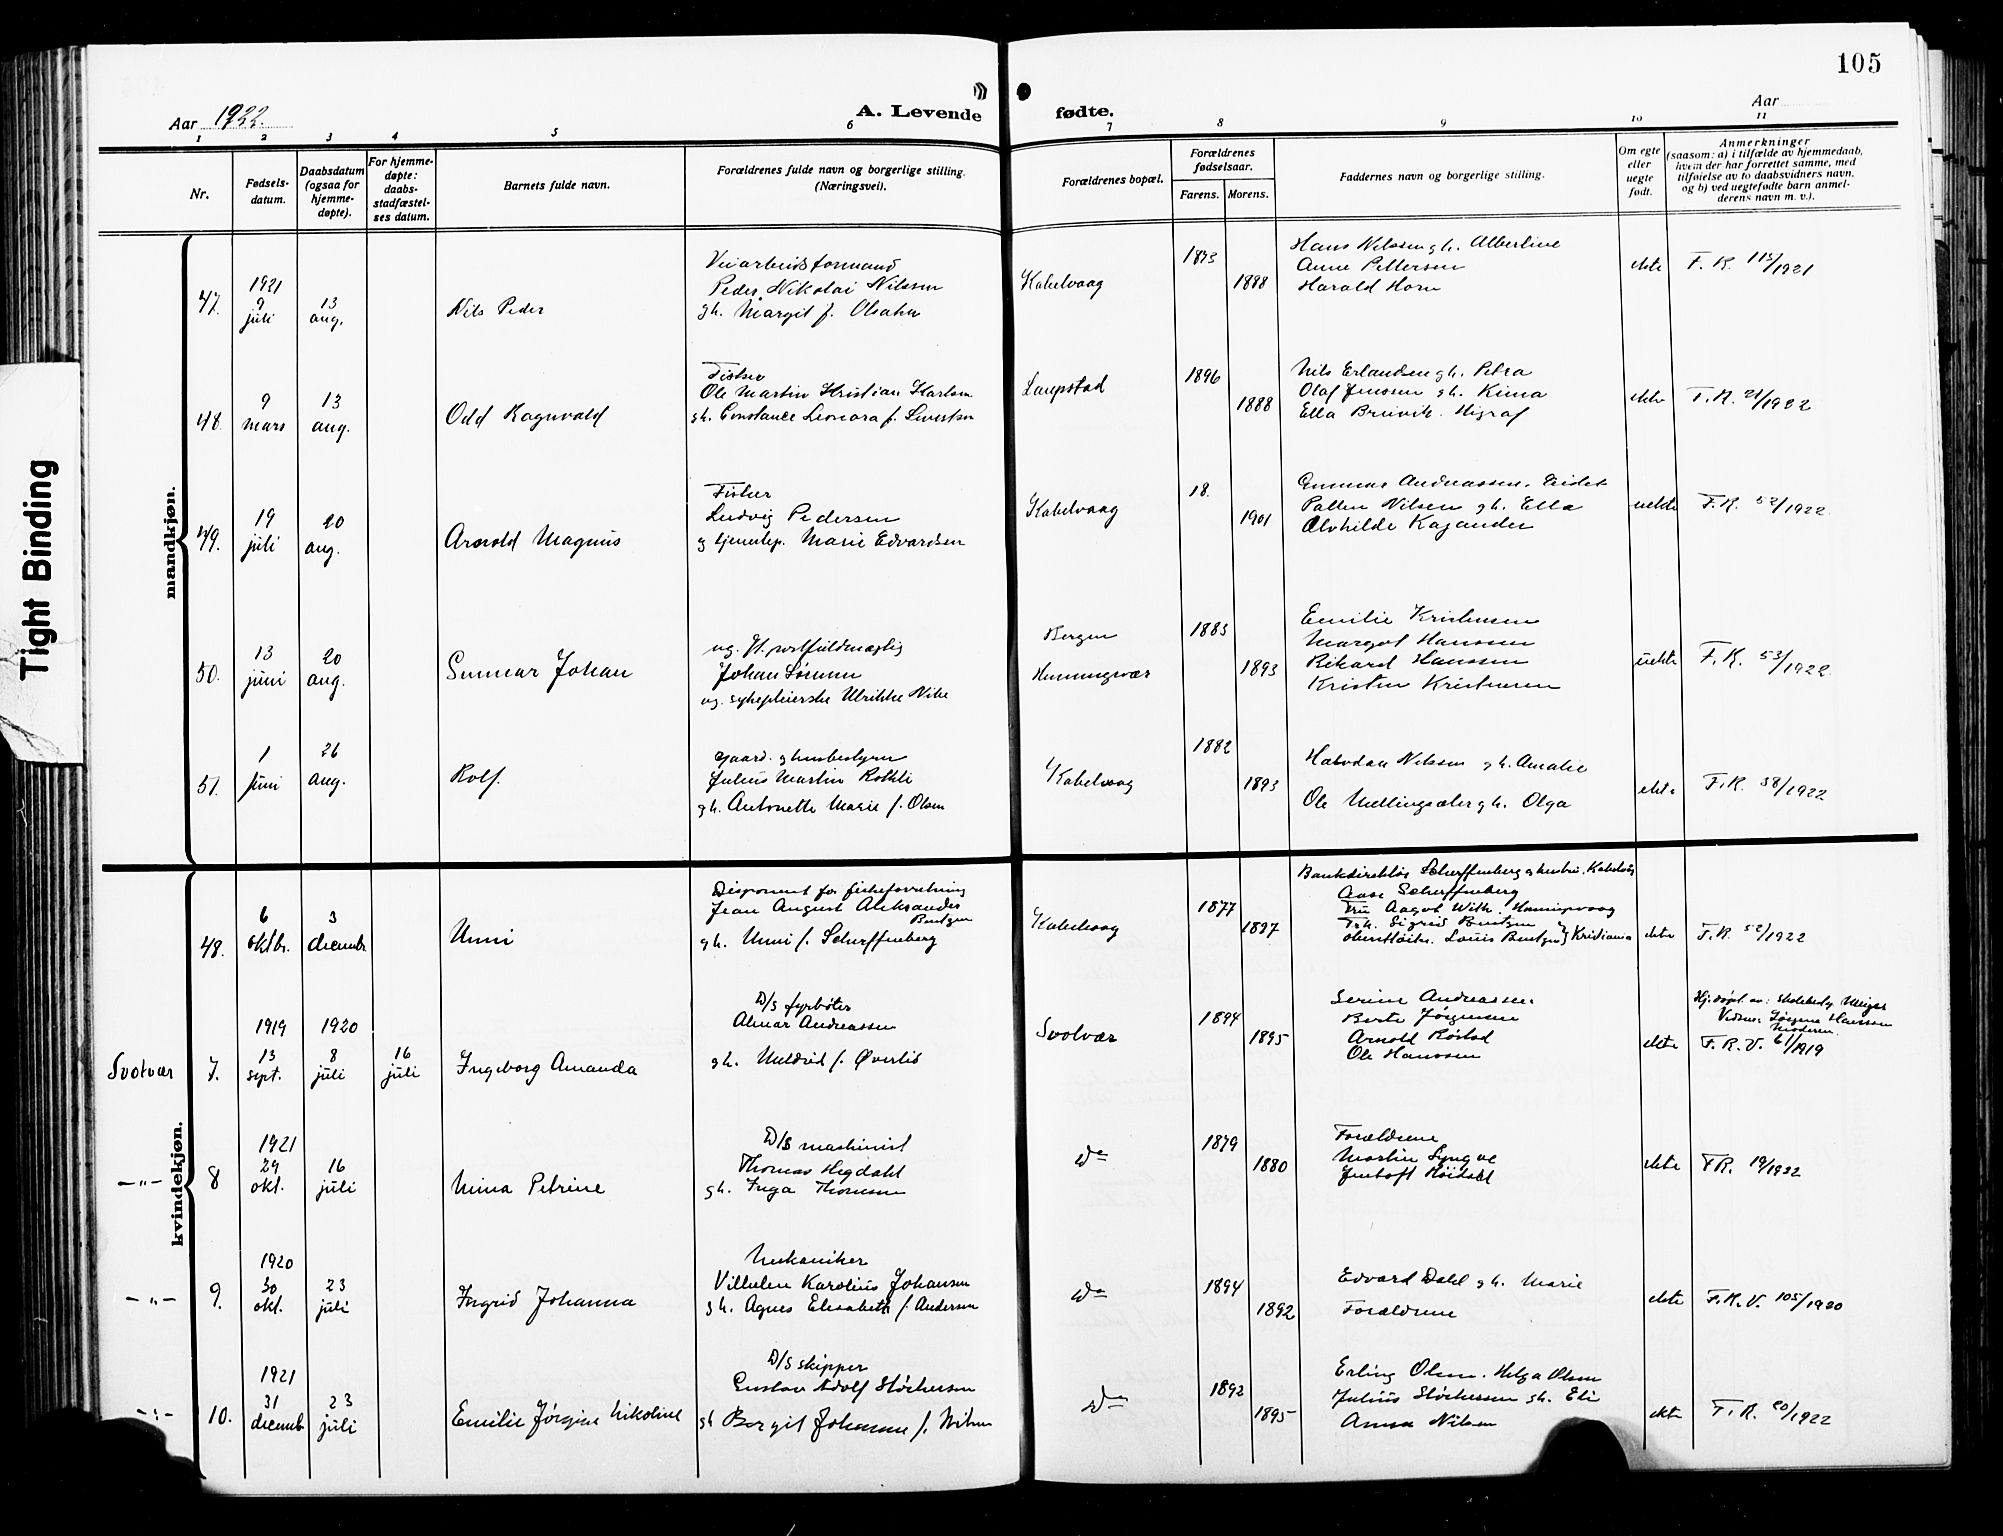 105
Aar 1922.
A. Levende
fødte.
Aar
1 2 3 4 5 6 7 8 9 10 11
Nr.
Fødsels-
datum.
Daabsdatum
(ogsaa for
hjemme-
døpte).
For hjemme-
døpte:
daabs-
stadfæstel-
ses datum.
Barnets fulde navn.
Forældrenes fulde navn og borgerlige stilling.
(Næringsvei).
Forældrenes bopæl.
Forældrenes
fødselsaar.
Farens. Morens.
Faddernes navn og borgerlige stilling.
Om egte
eller
uegte
født.
Anmerkninger
(saasom: a) i tilfælde av hjemmedaab,
hvem der har forrettet samme, med
tilføielse av to daabsvidners navn,
og b) ved uegtefødte barn anmel-
derens navn m. v.).
Tight Binding
mandkjøn.
47.
1921
9
juli
13
aug.
Nils Peder
Veiarbeidsformand
Peder Nikolai Nilssen
gh. Margit f.
Kabelvaag
1893
1898
Hans Nilssen gh. Albertine
Anne Pettersen
Harald Horn
ekte
F. R. 113/1921
48.
9
mars
13
aug.
Odd Ragnvald
Fisker
Ole Martin Kristian Karlsen
gh. Constance Leonora f. Sivertsen
Laupstad
1896
1888
Nils Erlandsen gh. Petra
Olaf Jenssen gh.
Ella Breivik. Higraf
ekte
F. R. 21/1922
49.
19
juli
20
aug.
Arnold Magnus
Fisker
Ludvig Pedersen
og tjenestep. Marie Edvardsen
Kabelvaag
18.
1901
Gunnar Andreassen.
Nilsen gh. Ella
Alvhilde Kajander
uekte
F. R. 52/1922
50.
13
juni
20
aug.
Gunnar Johan
ug. postfuldmægtig
Johan
ug. sykepleierske Ulrikke
Bergen
Henningsvær
1883
1893
Emilie Kristensen
Margot Hanssen
Rikard Hanssen
Kristen Kristensen
uekte
F. R. 53/1922
51.
1
juni
26
aug.
Rolf.
gaard. og husbestyrer
Julius Martin Rokkli
gh. Antonette Marie f. Olsen
Kabelvaag
1882
1893
Halvdan Nilssen gh. Amalie
Ole gh. Olga
ekte
F. R. 38/1922
48.
6
oktbr.
3
decembr
Unni
Disponent for fiskeforretning
Jean August Aleksander
Bentzen
gh. Unni f. Scharffenberg
Kabelvaag
1877
1897
Bankdirektør Scharffenberg og hustru. Kabelvåg
Aase Scharffenberg
Fru Aagot With. Henningsvaag
Frk. Sigrid Bentzen
Louis Bentzen } Kristiania
ekte
F. R. 52/1922
kvindekjøn.
Svolvær
7.
1919
13
sept.
1920
8
juli
16
juli
Ingeborg Amanda
D/S fyrbøter
Almar Andreassen
gh. Meldrid f. Øverlid
Svolvær
1894
1895
Serine Andreassen.
Berte Jørgensen
Arnold Røstad
Ole Hanssen
ekte
Hj. døpt av: skolebesty. Meiger
Vidner: Jørgine Hanssen
Moderen.
F. R. V. 61/1919
-"-
8
1921
29
okt.
16
juli
Mina Petrine
D/S maskinist
Thomas Hegdahl
gh. Inga Thomsen
do
1879
1880
Forældrene
Martin Lyngve
Jentoft Høidahl
ekte
F R. 19/1922
-"-
9.
1920
30
okt.
23
juli
Ingrid Johanna
Mekaniker
Vilhelm Karolius Johansen
gh. Agnes Elisabeth f. Andersen
do
1894
1892
Edvard Dahl gh. Marie
Forældrene
ekte
F. R. V. 105/1920
-"-
10.
1921
31
decemb
23
juli
Emilie Jørgine Nikoline
D/S skipper
Gustav Adolf Størkersen
gh Borgit Johanne f.
do
1892
1895
Erling Olsen. Helga Olsen
Julius Størkersen gh. Eli
Anna Nilsen
ekte
F. R. 20/1922